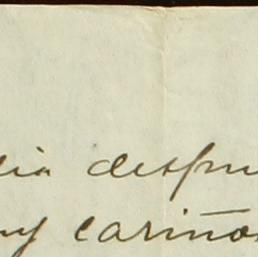 dia despu
uy cariño